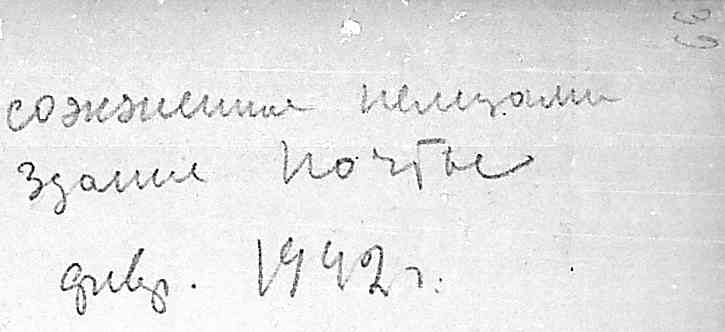 сожженное немцами
здание почты
февр. 1942 г.